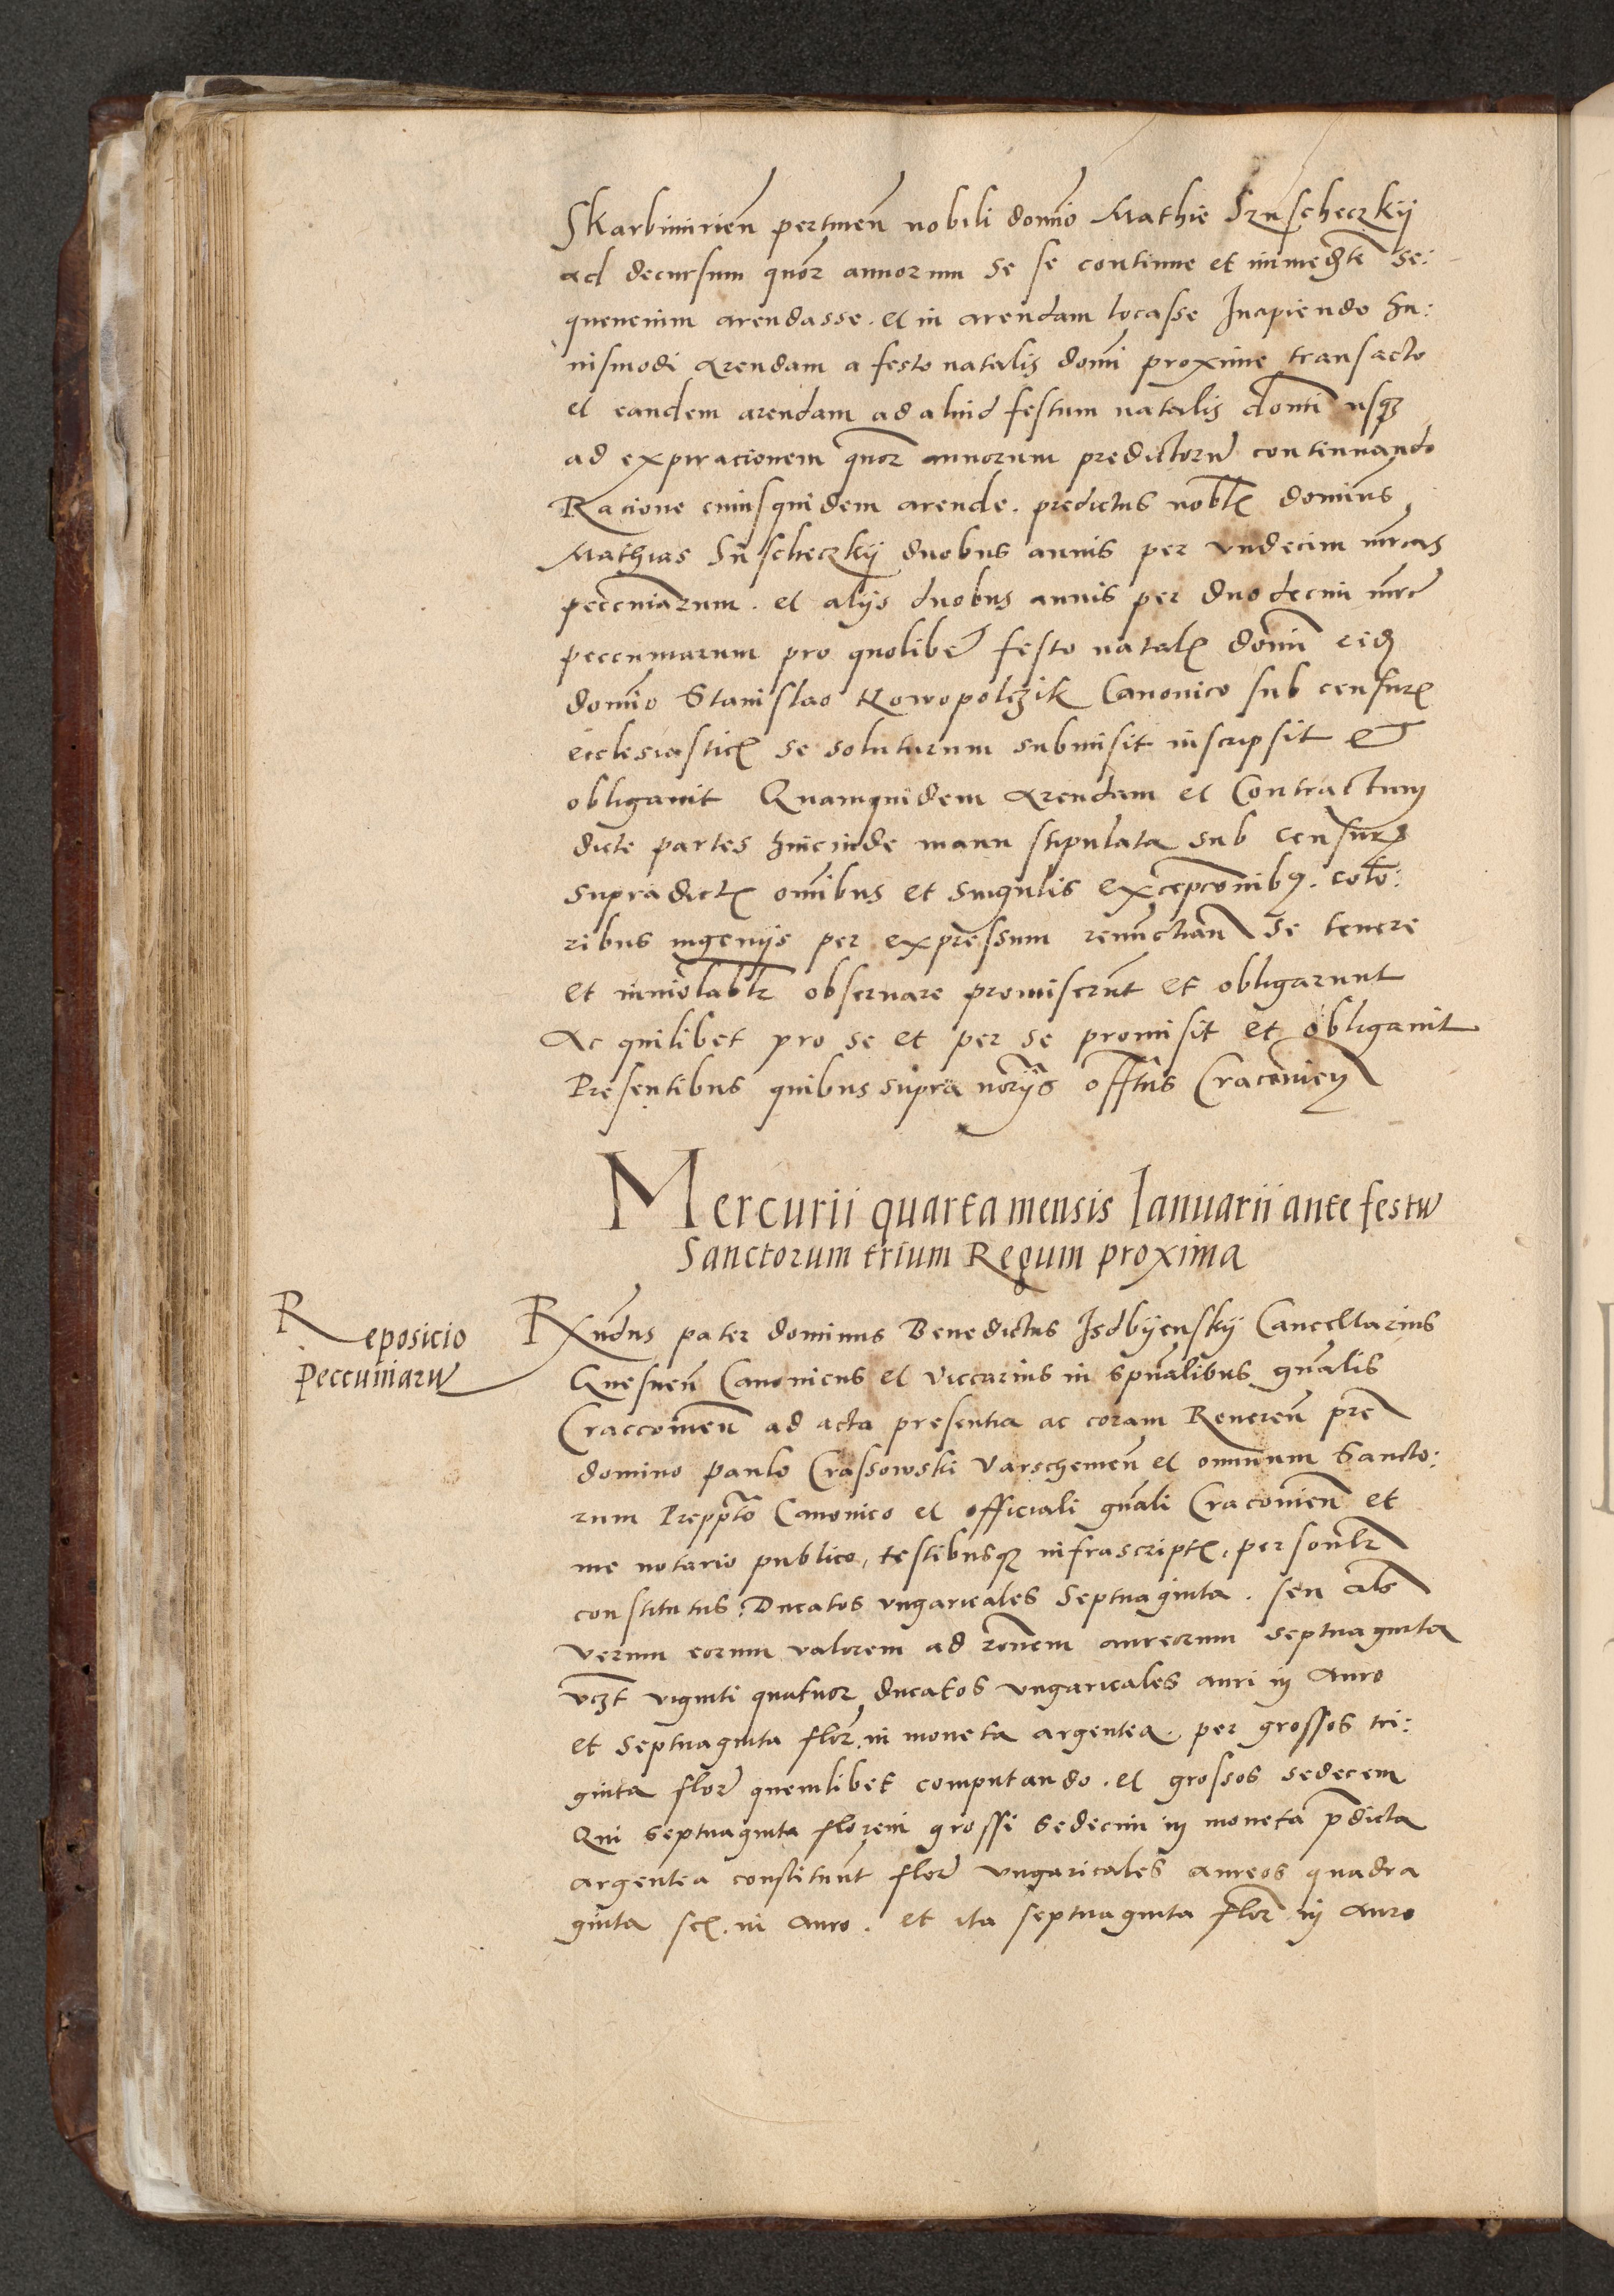 Skarbimirień pertineń nobili domïo Mathie Srzuscheczkÿ
ad decursum quõr annorum se se continue et immediãte se:
quencium arendasse. et in arendam locasse Incipiendo hu:
iusmodi Arendam a festo natalis domĩ proxime transacto
et eandem arendam ad aliud festum natalis domĩ usqꝫ
ad expiracionem quõr annorum predictorũ continuando
Racione cuiusquidem arende. predictus nobĩlꝭ dominus
Mathias Sũscheczkÿ duobus annis per vndecim mrcas
peccuniarum. et alijs duobus annis per duodecim mrc̃
peccuniarum pro quolibet festo natalꝭ domĩ eidꝫ
domïo Stanislao Nowopolczik Canonico sub censurꝭ
ecclesiasticꝭ se soluturum submisit inscripsit et
obligauit Quamquidem Arendam et Contractum
dicte partes hincinde manu stipulata sub censurꝭ
supradictꝭ omĩbus et singulis excepcõnibꝯ. colo:
ribus ingenijs per expressum renũctiañ se tenere
et inuiolabĩlr obseruare promiserũt et obligarunt
Ac quilibet pro se et per se promisit et obligauit
Presentibus quibus supra norijs offĩtus Cracouieñ
Mercurii quarta mensis Ianuarii ante festũ
Sanctorum trium Regum proxima
Reposicio
Peccuniarũ
Rxũdus pater dominus Benedictus Isdbÿenskÿ Cancellarius
Gnesneñ Canonicus et viccarius in spũalibus gñalis
Craccouieñ ad acta presentia ac coram Reuereñ pre
domino Paulo Crassowski Varschemeñ et omnium Sancto:
rum Preppĩto Canonico et officiali gñali Cracouieñ et
me notario publico, testibusqꝫ infrascriptꝭ, personalr
constitutus. Ducatos vngaricales Septuaginta. seu als
verum eorum valorem ad rõnem aureorum septuaginta
vcꝫt viginti quatuor ducatos vngaricales auri in Auro
et Septuaginta flor. in moneta argentea. per grossos tri:
ginta flor̃ quemlibet computando. et grossos sedecem
Qui septuaginta floreni grossi sedecim in moneta p̃dicta
argentea constituũt flor̃ vngaricales aureos quadra
ginta sex. in Auro. et ita septuaginta flor̃ in auro